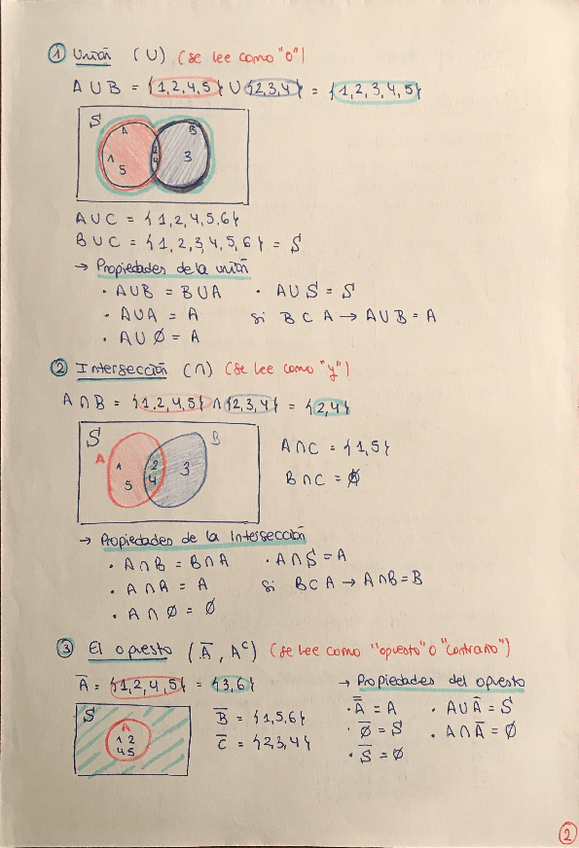 ① Unión (∪) (se lee como "o")
A ∪ B = {1,2,4,5} ∪ {2,3,4} = {1,2,3,4,5}
S
A B
1 2 3
5 4
A ∪ C = {1,2,4,5,6}
B ∪ C = {1,2,3,4,5,6} = S
→ Propiedades de la unión
· A∪B = B∪A · A∪S = S
· A∪A = A si B ⊂ A → A∪B = A
· A∪Ø = A
② Intersección (∩) (se lee como "y")
A ∩ B = {1,2,4,5} ∩ {2,3,4} = {2,4}
S B
A
1 2 3
5 4
A∩C = {1,5}
B∩C = Ø
→ Propiedades de la Intersección
· A∩B = B∩A · A∩S = A
· A∩A = A si B⊂A → A∩B = B
· A∩Ø = Ø
③ El opuesto (A̅, Aᶜ) (se lee como "opuesto" o "contrario")
A̅ = {1,2,4,5} = {3,6}
S
A
1 2
4 5
B̅ = {1,5,6}
C̅ = {2,3,4}
→ Propiedades del opuesto
· A̿ = A · A∪A̅ = S
· Ø̅ = S · A∩A̅ = Ø
· S̅ = Ø
②